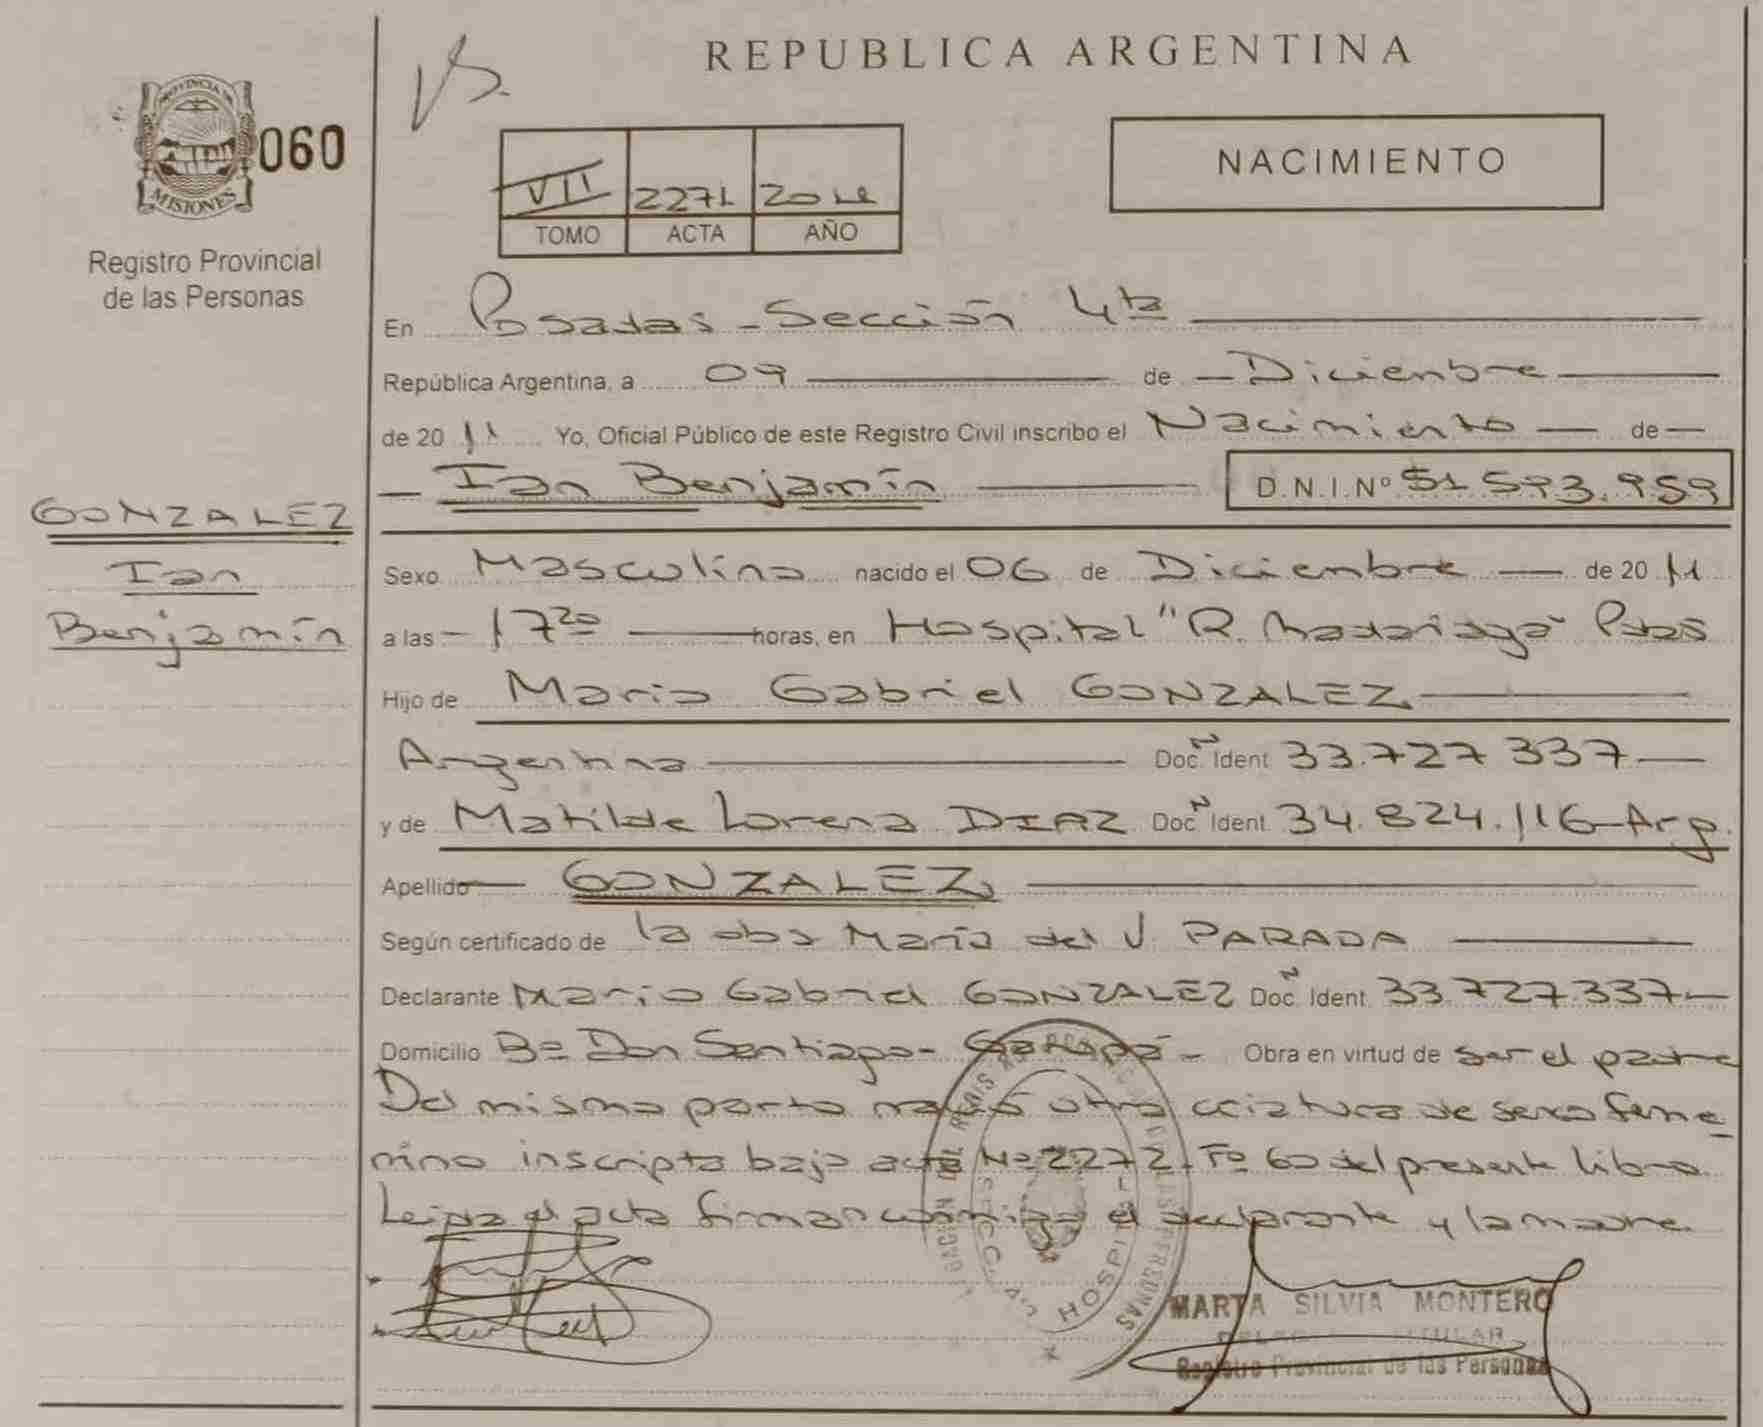 REPUBLICA ARGENTINA
PROVINCIA DE
MISIONES
060
Registro Provincial
de las Personas
VII 2271
TOMO ACTA AÑO
NACIMIENTO
En Posadas - Sección 4ta
República Argentina, a 09 de Diciembre
de 20 11 Yo, Oficial Público de este Registro Civil inscribo el Nacimiento de
Ian Benjamín D.N.I.Nº 51 593.959
GONZALEZ
Ian
Benjamín
Sexo Masculino nacido el 06 de Diciembre de 20 11
a las 17 20 horas, en Hospital "R. Madariaga" Pdas
Hijo de Mario Gabriel GONZALEZ
Argentina Doc. Ident 33.727 337
y de Matilde Lorena DIAZ Doc. Ident. 34.824.116 - Arg.
Apellido GONZALEZ
Según certificado de la obs María del V. PARADA
Declarante Mario Gabriel GONZALEZ Doc. Ident. 33.727.337
Domicilio Bº Don Santiago - Garupá - Obra en virtud de ser el padre
Del mismo parto nació otra criatura de sexo feme
nino inscripta bajo acta Nº 2272 - Fº 60 del presente libro
Leida el acta firman conmigo el declarante y la madre.
HOSPITAL
MARTA SILVIA MONTERO
TITULAR
Registro Provincial de las Personas